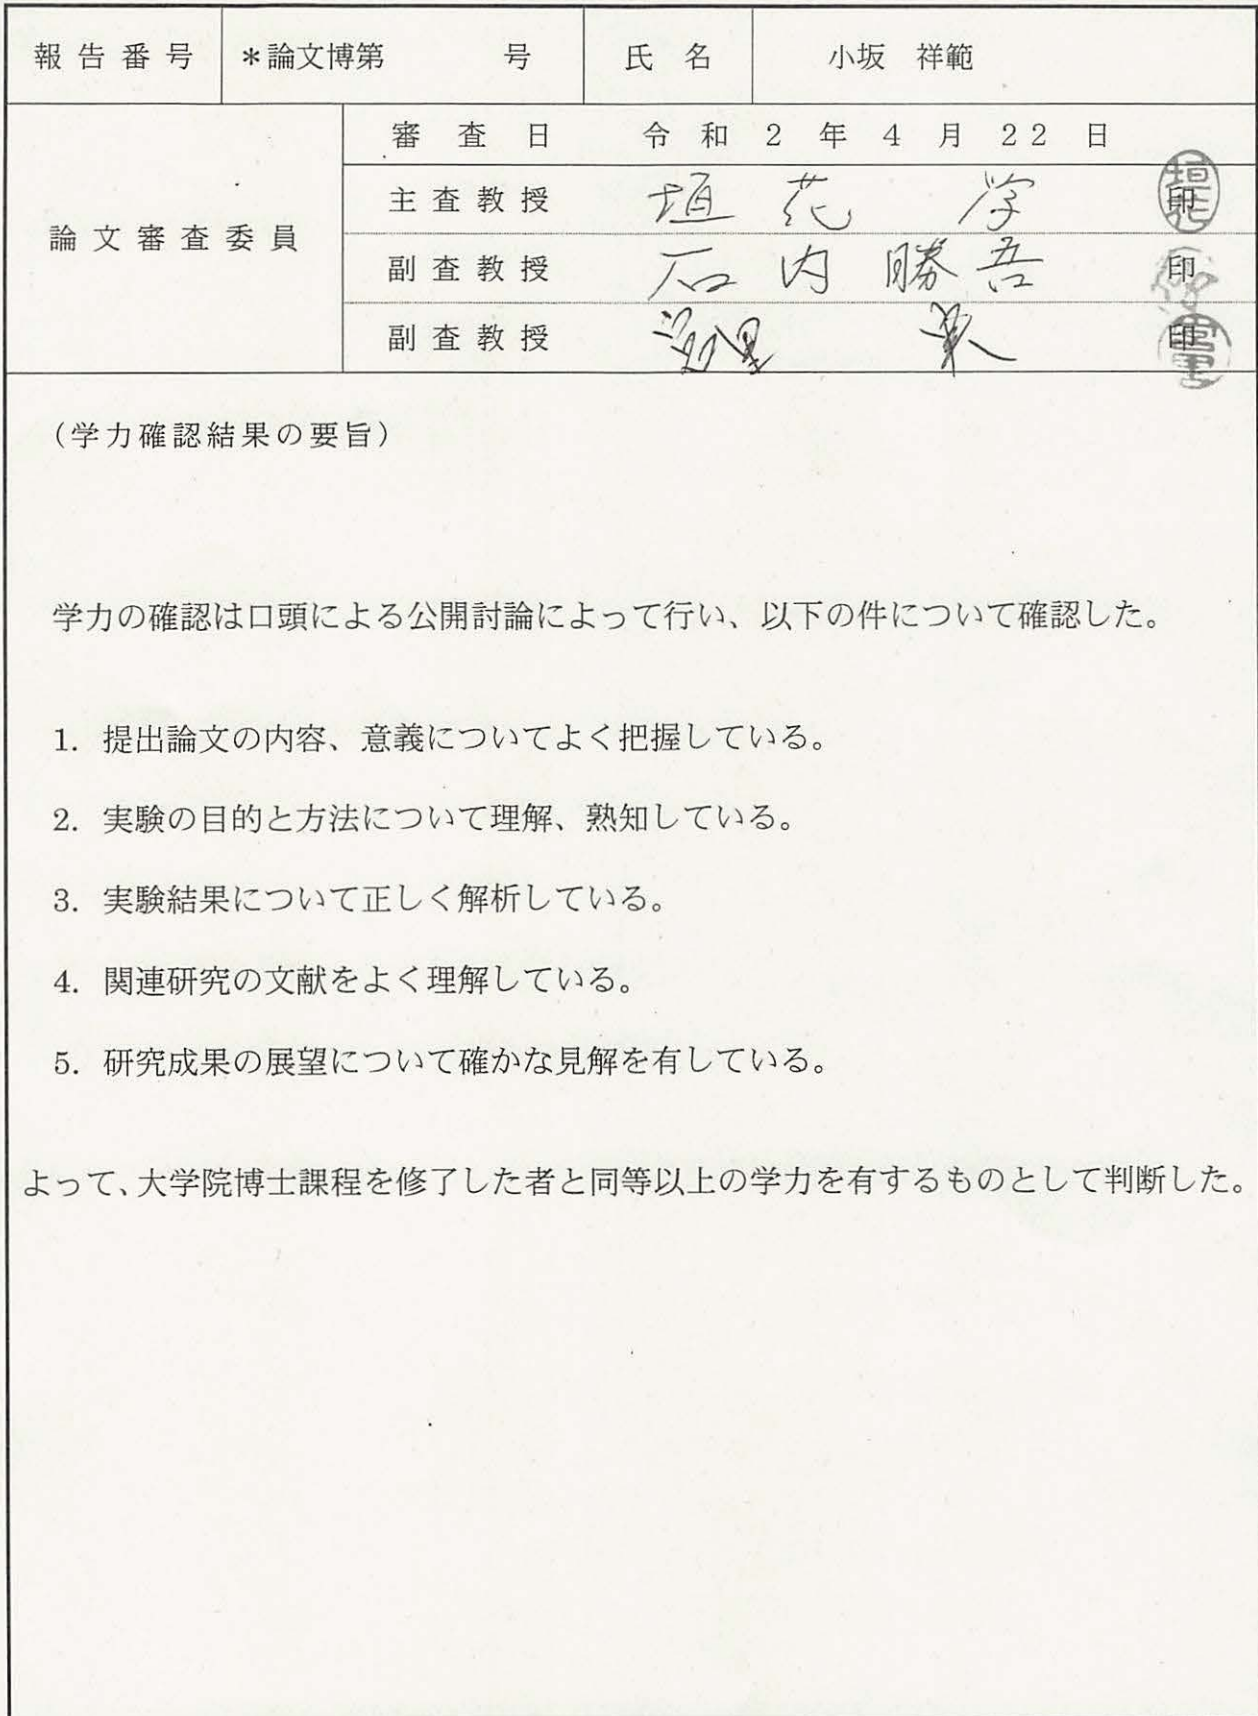 報告番号 *論文博第 号 氏名 小坂 祥範
論文審査委員
審査日 令和2年4月22日
主査教授 垣花 学 印
副査教授 石内 勝吾 印
副査教授 印
(学力確認結果の要旨)
学力の確認は口頭による公開討論によって行い、以下の件について確認した。
1. 提出論文の内容、意義についてよく把握している。
2. 実験の目的と方法について理解、熟知している。
3. 実験結果について正しく解析している。
4. 関連研究の文献をよく理解している。
5. 研究成果の展望について確かな見解を有している。
よって、大学院博士課程を修了した者と同等以上の学力を有するものとして判断した。